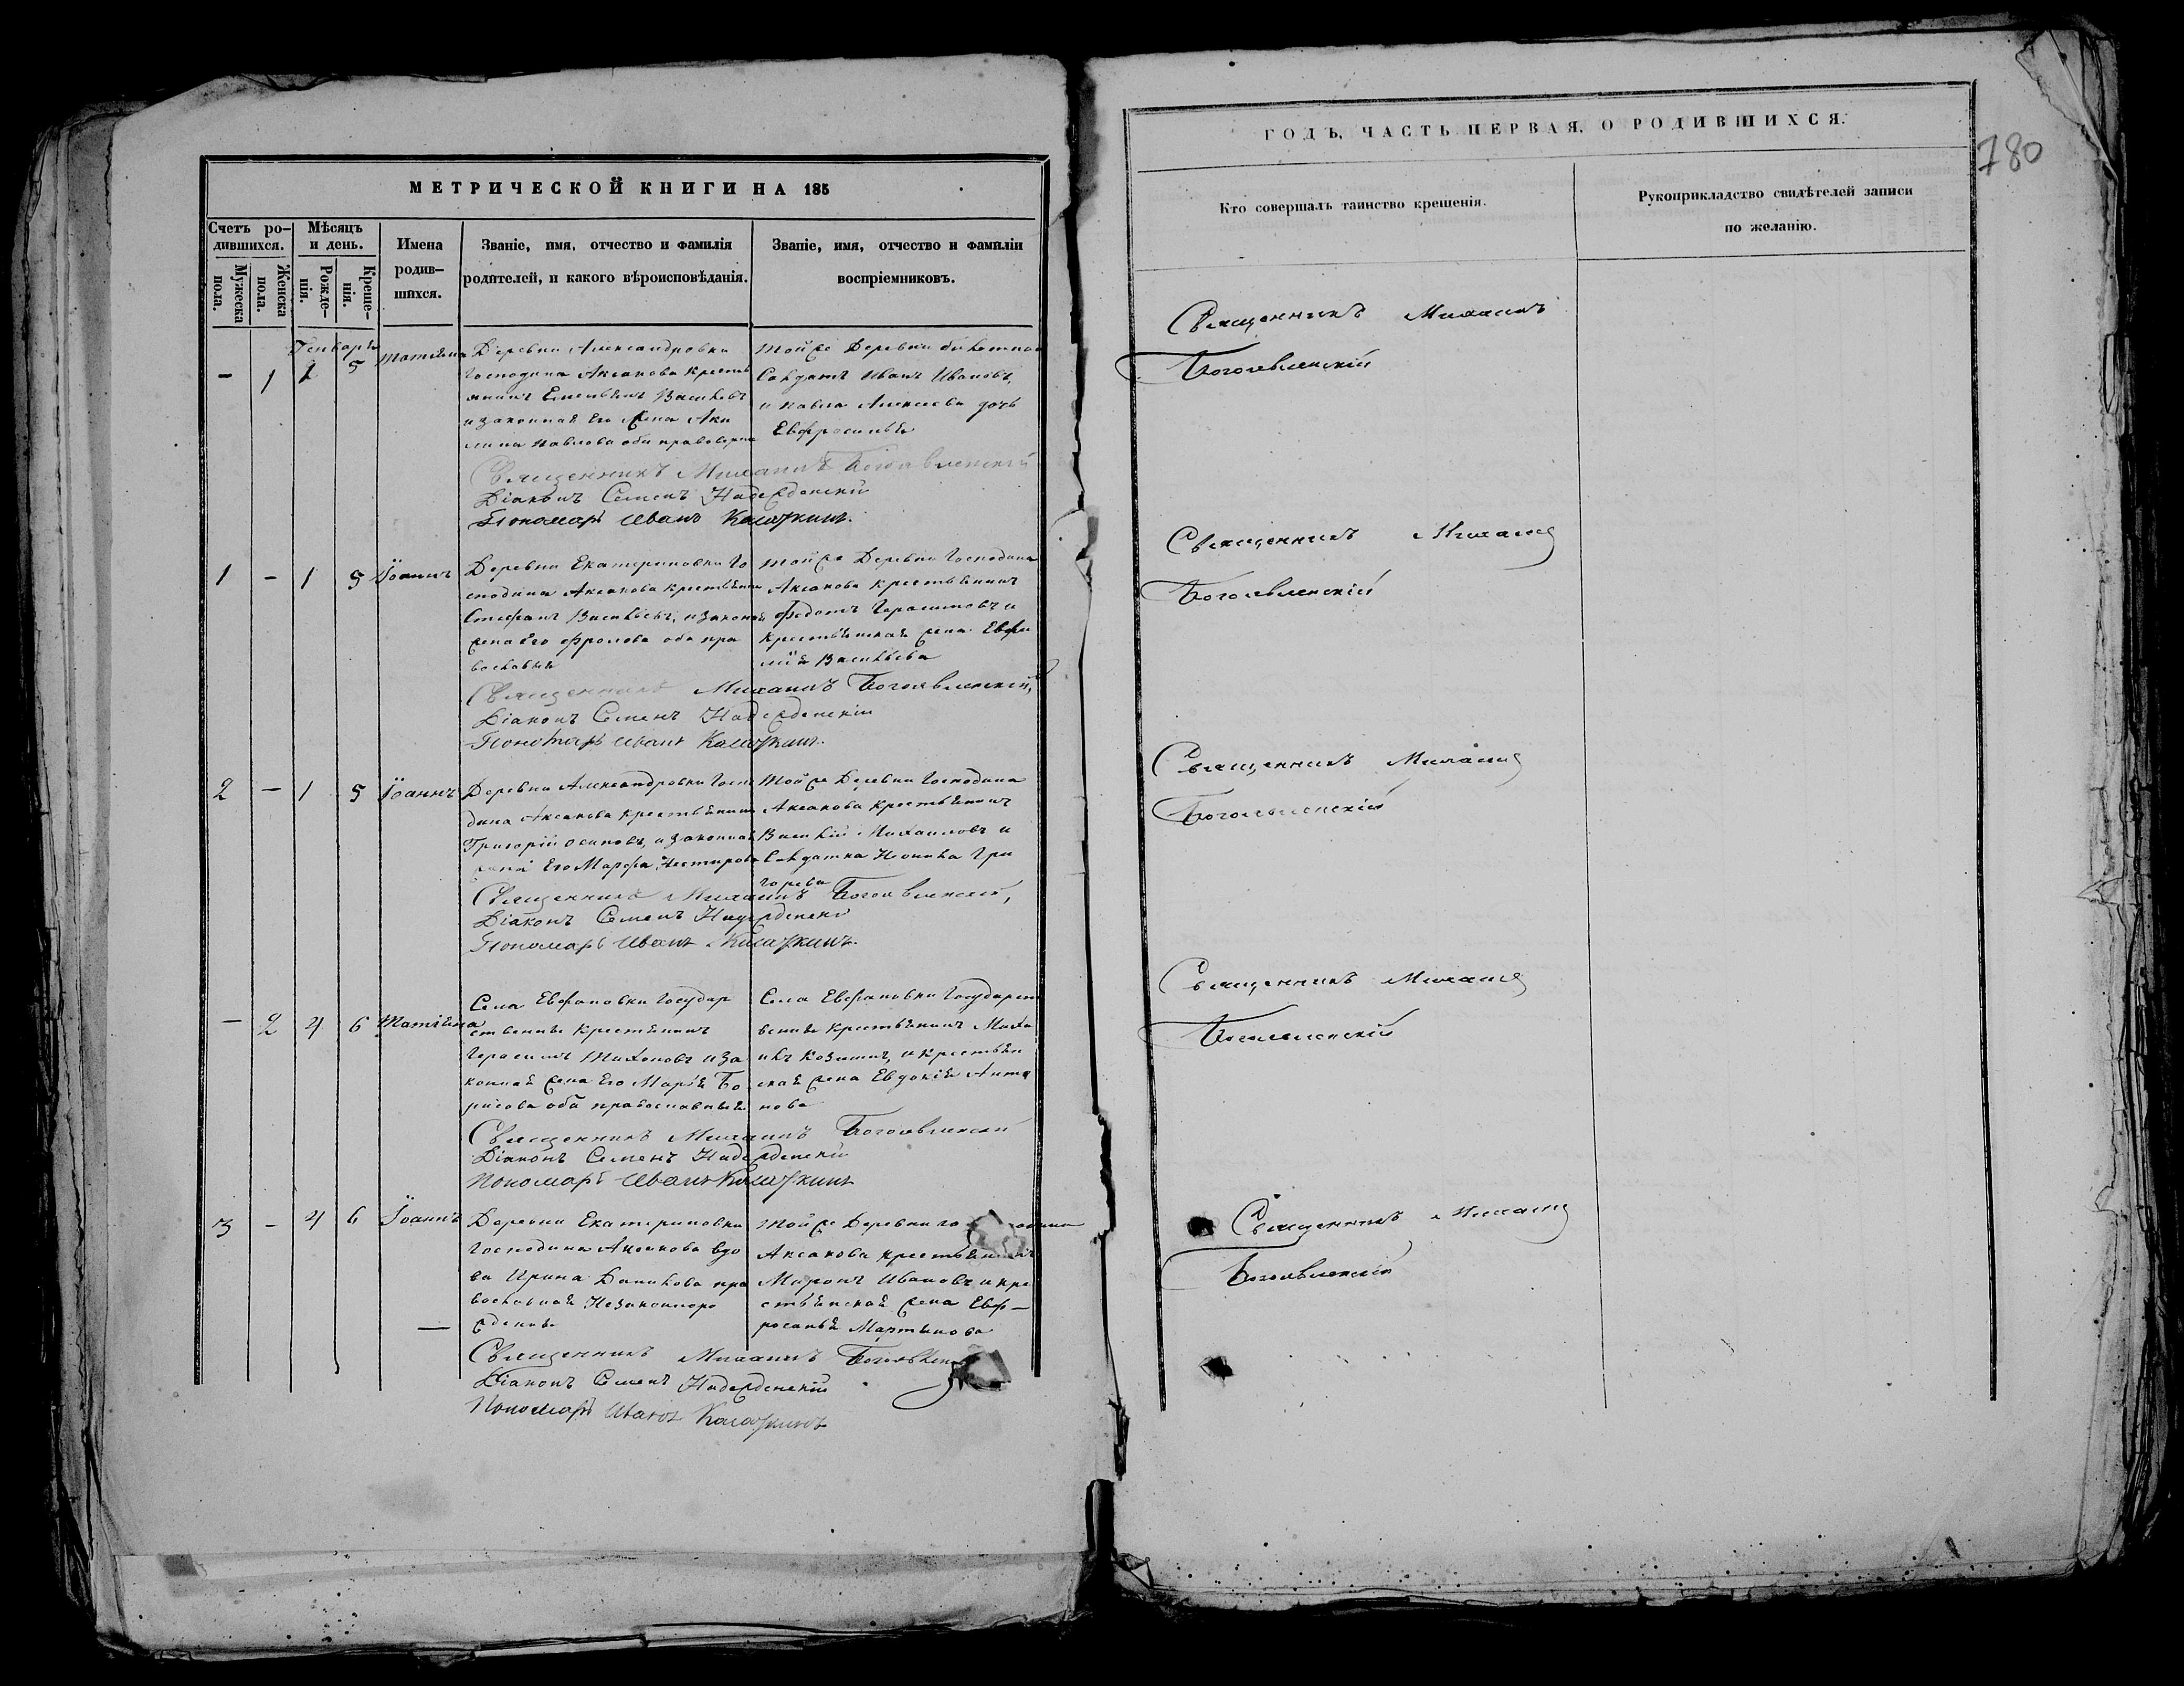 МЕТРИЧЕСКОЙ КНИГИ НА 185
Счетъ ро-
дившихся.
Мужеска
пола.
Женска
пола.
Мѣсяцъ
и день.
Рожде-
нія.
Креще-
нія.
Имена
родив-
шихся.
Званіе, имя, отчество и фамилія
родителей, и какого вѣроисповѣданія.
Званіе, имя, отчество и фамиліи
воспріемниковъ.
Генваря
- 1 1 5
Деревни Александровки
Господина Аксакова кресть
янинъ Емельянъ Васильевъ
и законная его жена Аки
лина Павлова оба
Той же Деревни
Солдатъ Иванъ Ивановъ,
и Павла Алексеева дочь
Евфросинья
Священникъ Михаилъ Богоявленскій
Діаконъ Семенъ Надежденскій
Пономарь Иванъ
1 - 1 5 Іоаннъ
Деревни Екатериновки Го
сподина Аксакова крестьянинъ
Стефанъ Васильевъ, и законая
жена его Фролова оба пра
вославныя
Той же Деревни Господина
Аксакова крестьянинъ
Федотъ Герасимовъ и
крестьянская жена Евфи
мія Васильева
Священникъ Михаилъ Богоявленскій,
Діаконъ Семенъ Надежденскій
Пономарь Иванъ
2 - 1 5 Іоаннъ
Деревни Александровки Госпо
дина Аксакова крестьянинъ
Григорій Осиповъ, и законная
жена Его Марфа Нестирова
Той же Деревни Господина
Аксакова крестьянинъ
Василій Михаиловъ и
Солдатка Гри
горева
Священникъ Михаилъ Богоявленскій,
Діаконъ Семенъ Надежденскій
Пономарь Иванъ
- 2 4 6 Татіяна
Села Евфановки Государ
ственные крестьянинъ
Герасимъ Тихоновъ и за
конная жена Его Марія Бо
рисова оба православныя
Села Евфановки Государст
венные крестьянинъ Миха
илъ Козминъ, и крестьян
ская жена Евдокія Анто
нова
Священникъ Михаилъ Богоявленскій
Діаконъ Семенъ Надежденскій
Пономарь Иванъ
3 - 4 6 Іоаннъ
Деревни Екатериновки
Господина Аксакова вдо
ва Ирина Данилова пра
вославная Незаконноро
жденые
Той же Деревни
Аксакова крестьянинъ
Миронъ Ивановъ и кре
стьянская жена Евф-
росинья Мартынова
Священникъ Михаилъ
Діаконъ Семенъ Надежденскій
Пономарь Иванъ
ГОДЪ, ЧАСТЬ ПЕРВАЯ, О РОДИВШИХСЯ.
780
Кто совершалъ таинство крещенія.
Рукоприкладство свидѣтелей записи
по желанію.
Священникъ Михаилъ
Богоявленскій
Священникъ Михаилъ
Богоявленскій
Священникъ Михаилъ
Богоявленскій
Священникъ Михаилъ
Богоявленскій
Священникъ Михаилъ
Богоявленскій